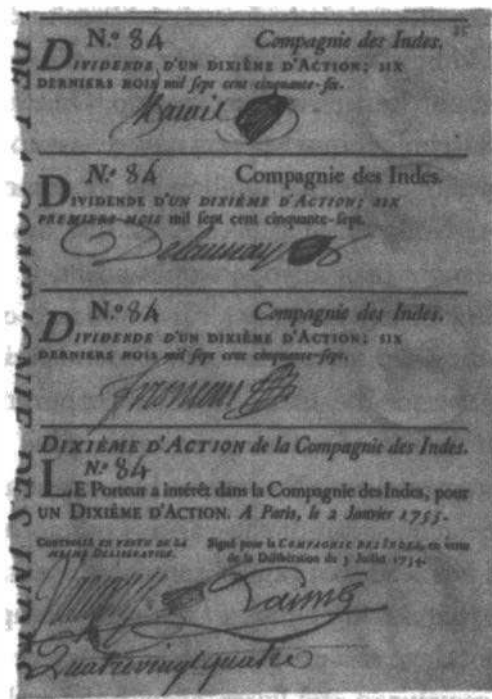 N.º 84 Compagnie des Indes.
DIVIDENDE D'UN DIXIÈME D'ACTION; SIX
DERNIERS MOIS mil sept cent cinquante-six.
N.º 84 Compagnie des Indes.
DIVIDENDE D'UN DIXIÈME D'ACTION; SIX
PREMIERS MOIS mil sept cent cinquante-sept.
Delaunay
N.º 84 Compagnie des Indes.
DIVIDENDE D'UN DIXIÈME D'ACTION; SIX
DERNIERS MOIS mil sept cent cinquante-sept.
DIXIÈME D'ACTION de la Compagnie des Indes.
N.º 84
LE Porteur a intérêt dans la Compagnie des Indes, pour
UN DIXIÈME D'ACTION. A Paris, le 2 Janvier 1755.
CONTROLLÉ EN VERTU DE LA Signé pour la COMPAGNIE DES INDES, en vertu
MESME DÉLIBÉRATION. de la Délibération du 3 Juillet 1754.
Quatrevingtquatre
DE LA COMPAGNIE DES INDES